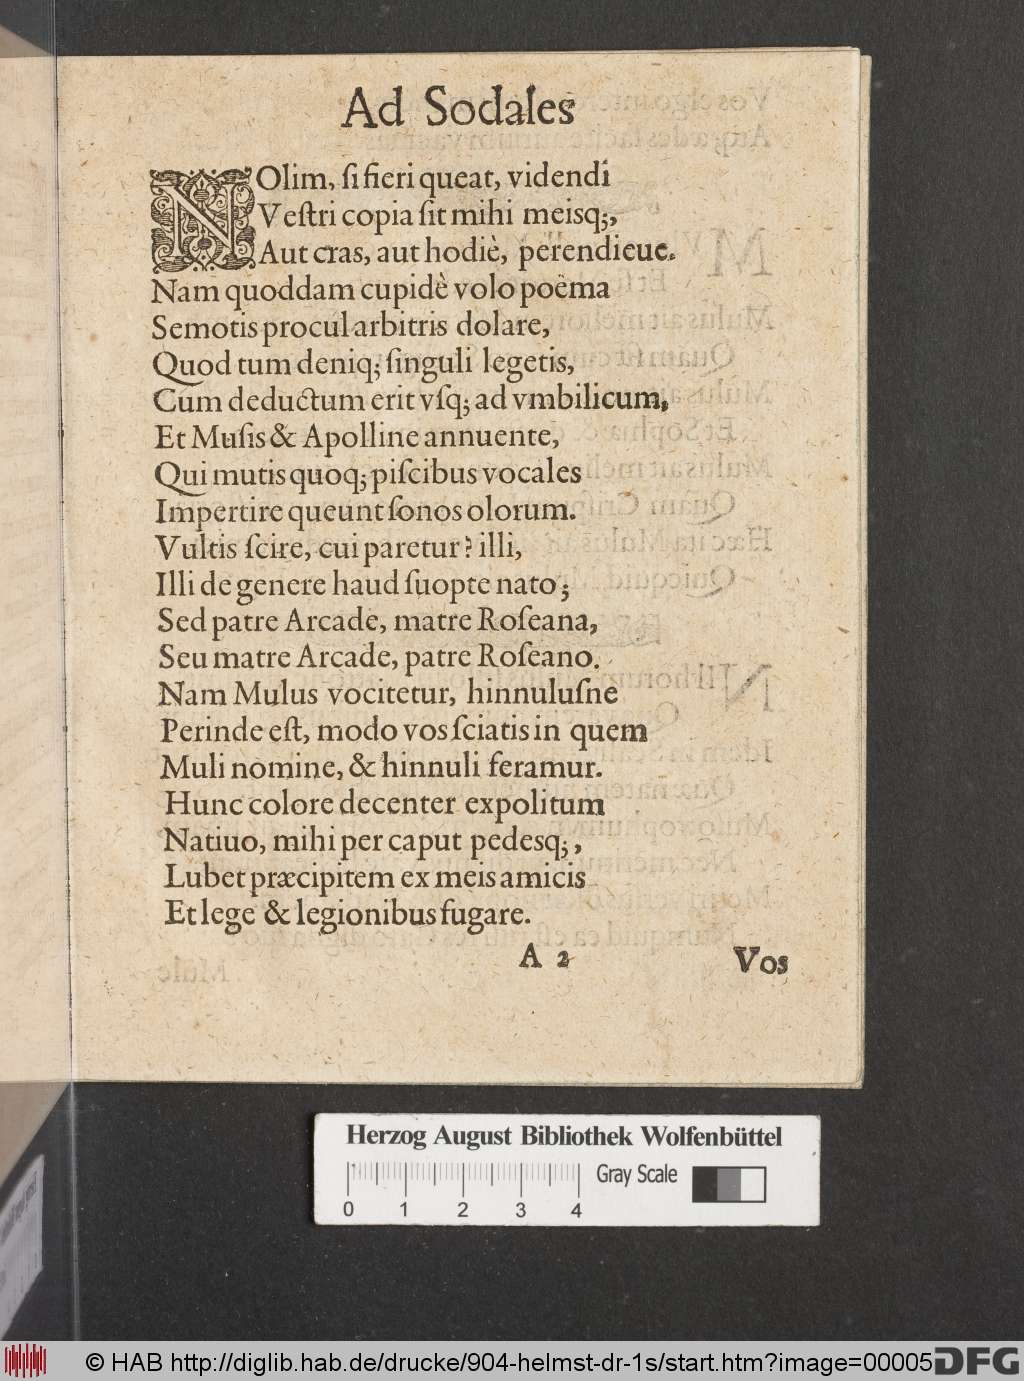 Ad Sodales
NOlim, ſi fieri queat, videndi
Veſtri copia ſit mihi meisq;,
Aut cras, aut hodiè, perendieue.
Nam quoddam cupidè volo poëma
Semotis procul arbitris dolare,
Quod tum deniq; ſinguli legetis,
Cum deductum erit vſq; ad vmbilicum,
Et Muſis & Apolline annuente,
Qui mutis quoq; piſcibus vocales
Impertire queunt ſonos olorum.
Vultis ſcire, cui paretur? illi,
Illi de genere haud ſuopte nato;
Sed patre Arcade, matre Roſeana,
Seu matre Arcade, patre Roſeano.
Nam Mulus vocitetur, hinnuluſne
Perinde eſt, modo vos ſciatis in quem
Muli nomine, & hinnuli feramur.
Hunc colore decenter expolitum
Natiuo, mihi per caput pedesq;,
Lubet præcipitem ex meis amicis
Et lege & legionibus fugare.
A 2 Vos
Herzog August Bibliothek Wolfenbüttel
Gray Scale
0 1 2 3 4
© HAB http://diglib.hab.de/drucke/904-helmst-dr-1s/start.htm?image=00005
DFG